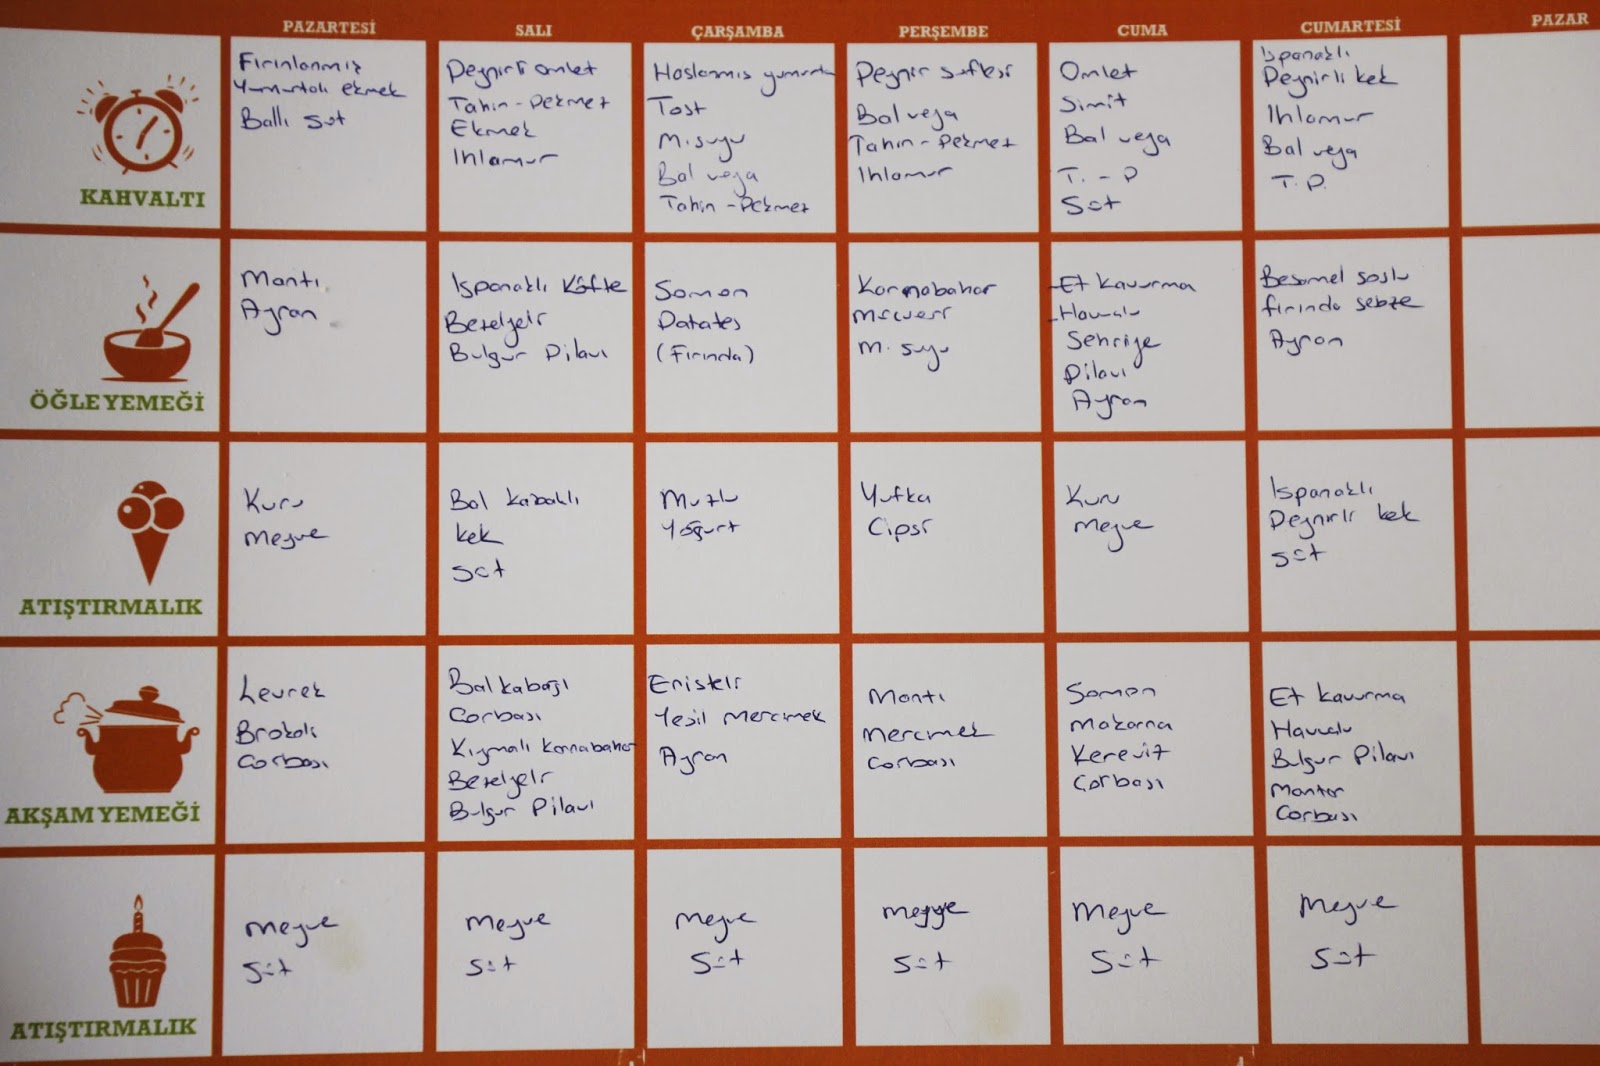 PAZARTESİ
SALI
ÇARŞAMBA
PERŞEMBE
CUMA
CUMARTESİ
PAZAR
KAHVALTI
Fırınlanmış
Yumurtalı ekmek
Ballı süt
Peynirli omlet
Tahin-Pekmez
Ekmek
Ihlamur
Haşlanmış yumurta
Tost
M.suyu
Bal veya
Tahin-Pekmez
Peynir suflesi
Bal veya
Tahin-Pekmez
Ihlamur
Omlet
Simit
Bal veya
T. - P
Süt
Ispanaklı
Peynirli kek
Ihlamur
Bal veya
T.P.
ÖĞLE YEMEĞİ
Mantı
Ayran
Ispanaklı Köfte
Bezelyeli
Bulgur Pilavı
Somon
Patates
(Fırında)
Karnabahar
Mücveri
M. suyu
-Et kavurma
-Havuçlu
Şehriye
Pilavı
Ayran
Beşamel soslu
fırında sebze
Ayran
ATIŞTIRMALIK
Kuru
meyve
Bal kabaklı
kek
süt
Muzlu
Yoğurt
Yufka
Cipsi
Kuru
meyve
Ispanaklı
Peynirli kek
süt
AKŞAM YEMEĞİ
Levrek
Brokoli
Çorbası
Balkabağı
Çorbası
Kıymalı karnabahar
Bezelyeli
Bulgur Pilavı
Erişteli
Yeşil Mercimek
Ayran
Mantı
Mercimek
Çorbası
Somon
Makarna
Kereviz
Çorbası
Et kavurma
Havuçlu
Bulgur Pilavı
Mantar
Çorbası
ATIŞTIRMALIK
meyve
süt
meyve
süt
meyve
süt
meyve
süt
meyve
süt
meyve
süt